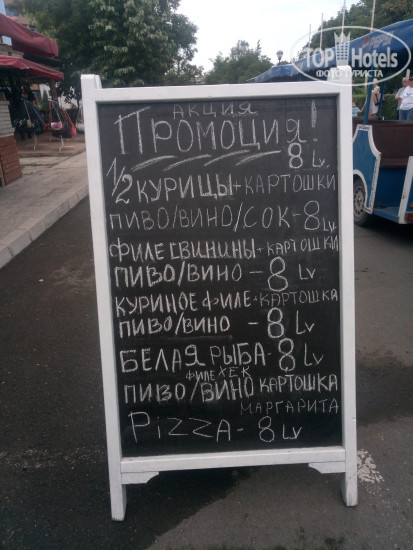 TopHotels
ФОТО ТУРИСТА
АКЦИЯ
ПРОМОЦИЯ!
8 Lv
1/2 КУРИЦЫ+КАРТОШКИ
ПИВО/ВИНО/СОК-8 Lv
ФИЛЕ СВИНИНЫ+КАРТОШКИ
ПИВО/ВИНО-8 Lv
КУРИНОЕ ФИЛЕ+КАРТОШКА
ПИВО/ВИНО-8 Lv
БЕЛАЯ РЫБА-8 Lv
ФИЛЕ ХЕК
ПИВО/ВИНО КАРТОШКА
МАРГАРИТА
PIZZA-8 Lv